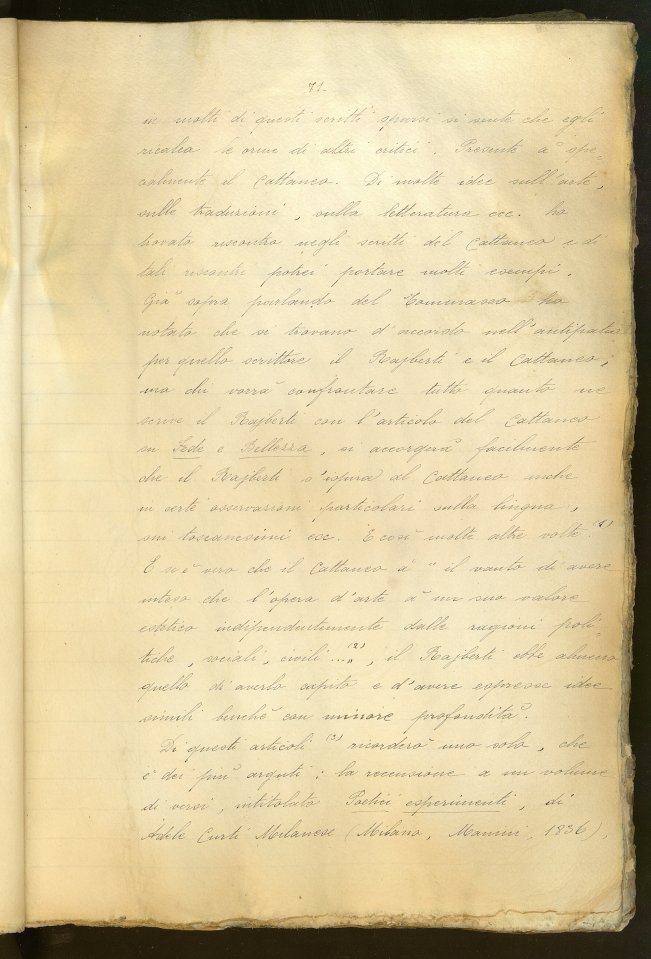 71.
in molti di questi scritti sparsi si sente che egli
ricalca le orme di altri critici. Presente à spe-
cialmente il Cattaneo. Di molte idee sull'arte,
sulle traduzioni, sulla letteratura ecc. ho
trovato riscontro negli scritti del Cattaneo e di
tali riscontri potrei portare molti esempi.
Già sopra parlando del Tommaseo ho
notato che si trovano d'accordo nell'antipatia
per quello scrittore il Rajberti e il Cattaneo;
ma chi vorrà confrontare tutto quanto ne
scrive il Rajberti con l'articolo del Cattaneo
su Fede e Bellezza, si accorgerà facilmente
che il Rajberti s'ispira al Cattaneo anche
in certe osservazioni particolari sulla lingua,
sui toscanesimi ecc. E così molte altre volte. (1)
E se è vero che il Cattaneo à "il vanto di avere
inteso che l'opera d'arte à un suo valore
estetico indipendentemente dalle ragioni poli-
tiche, sociali, civili ..." (2), il Rajberti ebbe almeno
quello di averlo capito e d'avere espresse idee
simili benchè con minore profondità.
Di questi articoli (3) ricorderò uno solo, che
è dei più arguti: la recensione a un volume
di versi, intitolato Poetici esperimenti, di
Adele Curti Milanese (Milano, Manini, 1836),